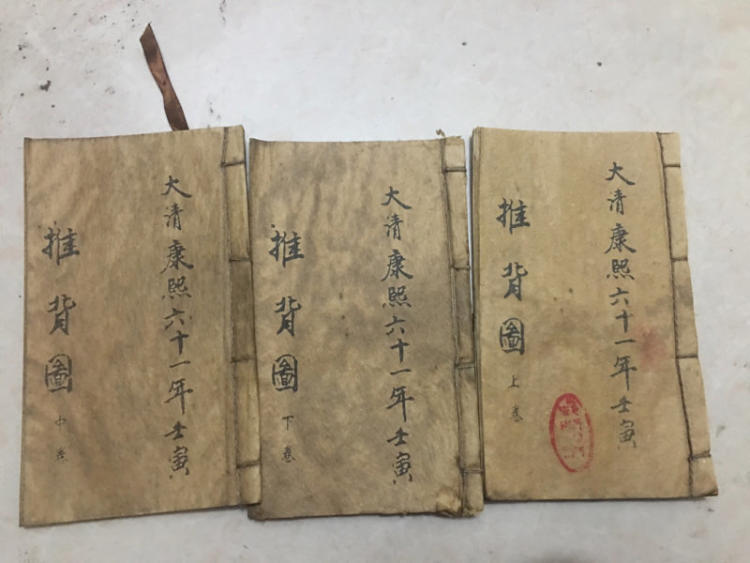 大清康熙六十一年壬寅
推背圖
中卷
大清康熙六十一年壬寅
推背圖
下卷
大清康熙六十一年壬寅
推背圖
上卷